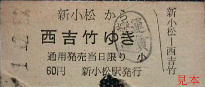 新小松 から
西吉竹ゆき
通用発売当日限り 小
60円 新小松駅発行
新小松－西吉竹
見本